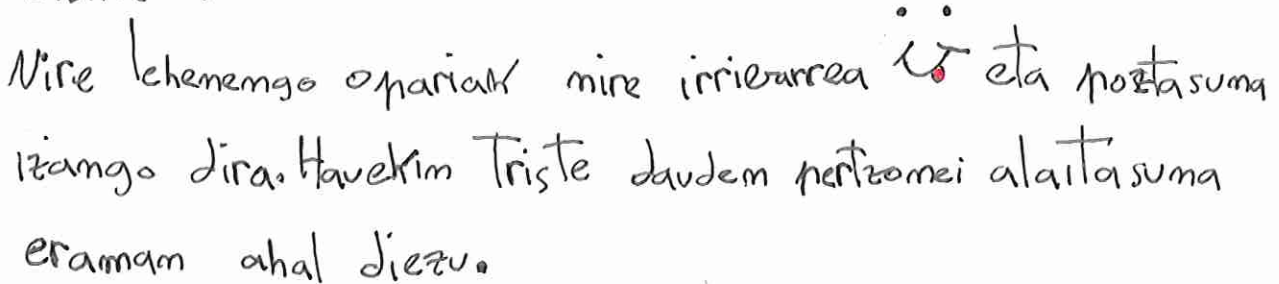 Nire lehenengo opariak nire irrifarrea eta poztasuna
izango dira. Hauekin Triste dauden pertzonei alaitasuna
eraman ahal diezu.